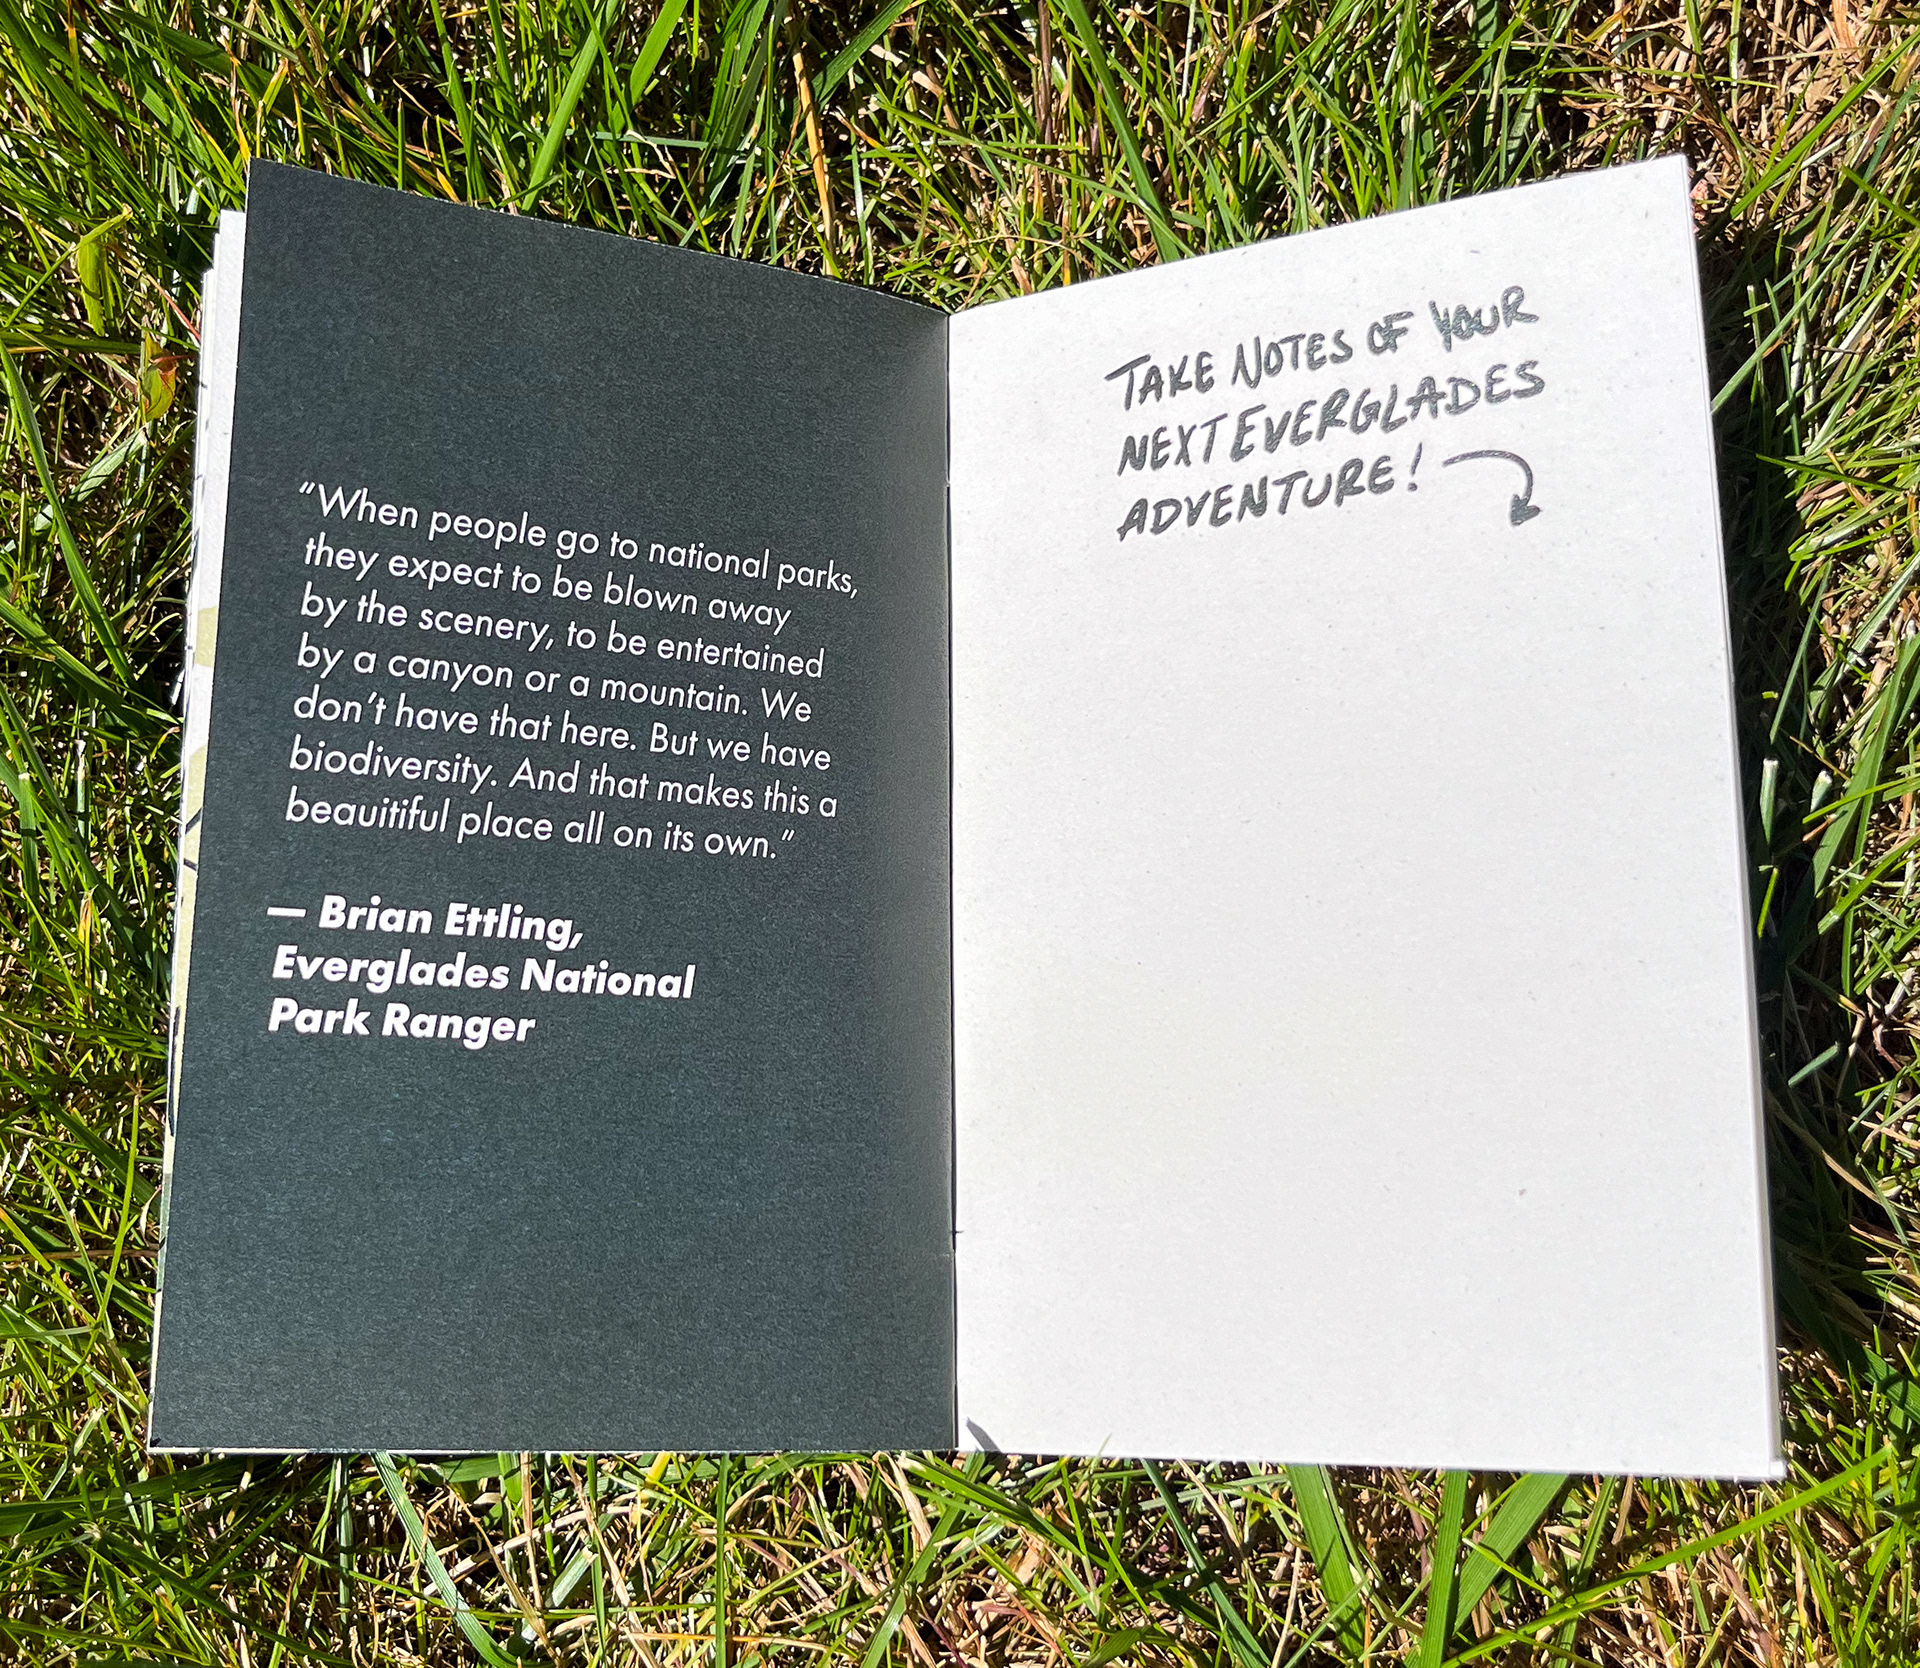 “When people go to national parks,
they expect to be blown away
by the scenery, to be entertained
by a canyon or a mountain. We
don’t have that here. But we have
biodiversity. And that makes this a
beauitiful place all on its own.”
— Brian Ettling,
Everglades National
Park Ranger
TAKE NOTES OF YOUR
NEXT EVERGLADES
ADVENTURE!